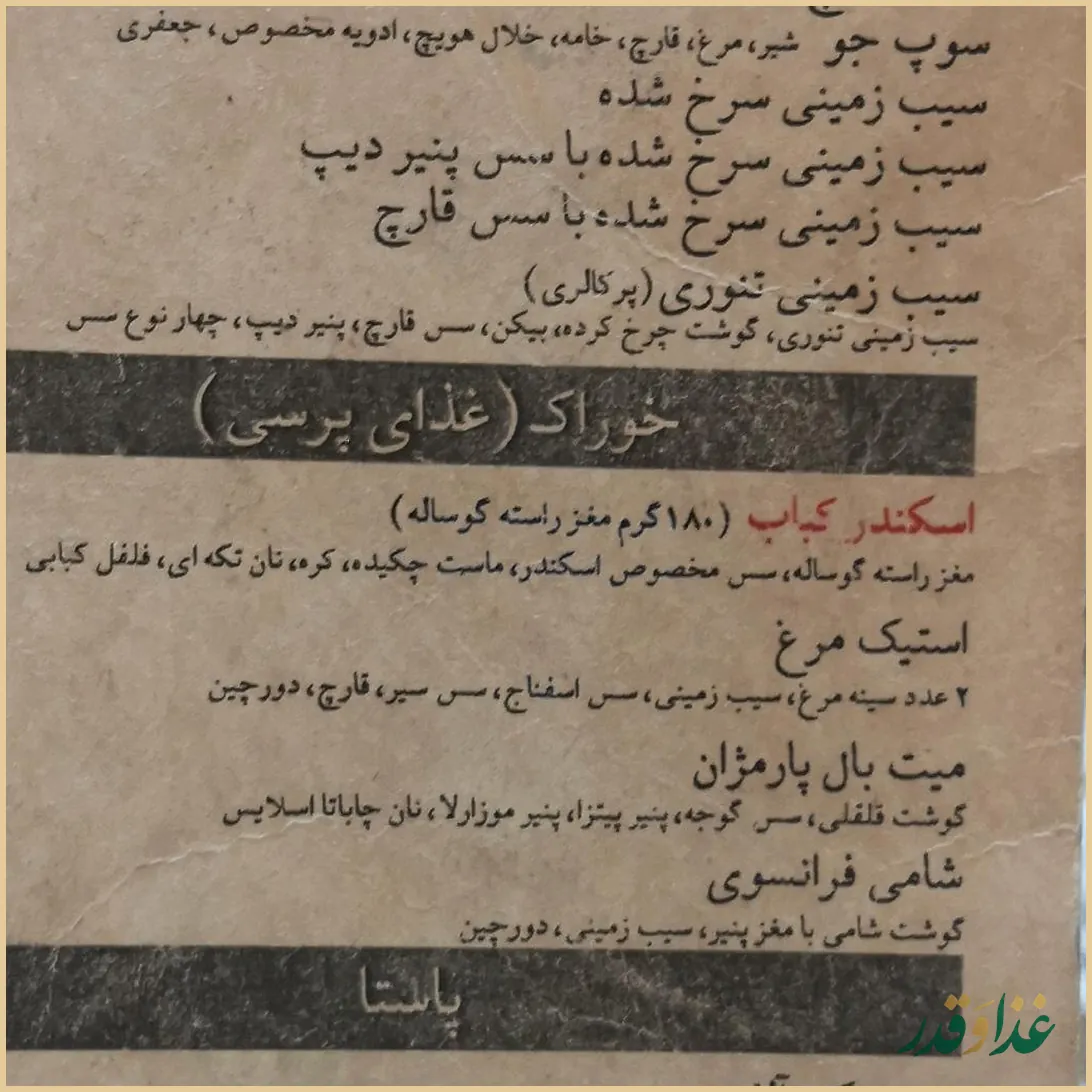 سوپ جو شیر، مرغ، قارچ، خامه، خلال هویچ، ادویه مخصوص، جعفری
سیب زمینی سرخ شده
سیب زمینی سرخ شده با سس پنیر دیپ
سیب زمینی سرخ شده با سس قارچ
سیب زمینی تنوری (پر کالری)
سیب زمینی تنوری، گوشت چرخ کرده، بیکن، سس قارچ، پنیر دیپ، چهار نوع سس
خوراک (غذای پرسی)
اسکندر کباب (۱۸۰ گرم مغز راسته گوساله)
مغز راسته گوساله، سس مخصوص اسکندر، ماست چکیده، کره، نان تکه ای، فلفل کبابی
استیک مرغ
۲ عدد سینه مرغ، سیب زمینی، سس اسفناج، سس سیر، قارچ، دورچین
میت بال پارمژان
گوشت قلقلی، سس گوجه، پنیر پیتزا، پنیر موزارلا، نان چاباتا اسلایس
شامی فرانسوی
گوشت شامی با مغز پنیر، سیب زمینی، دورچین
پاستا
غذا و قدر